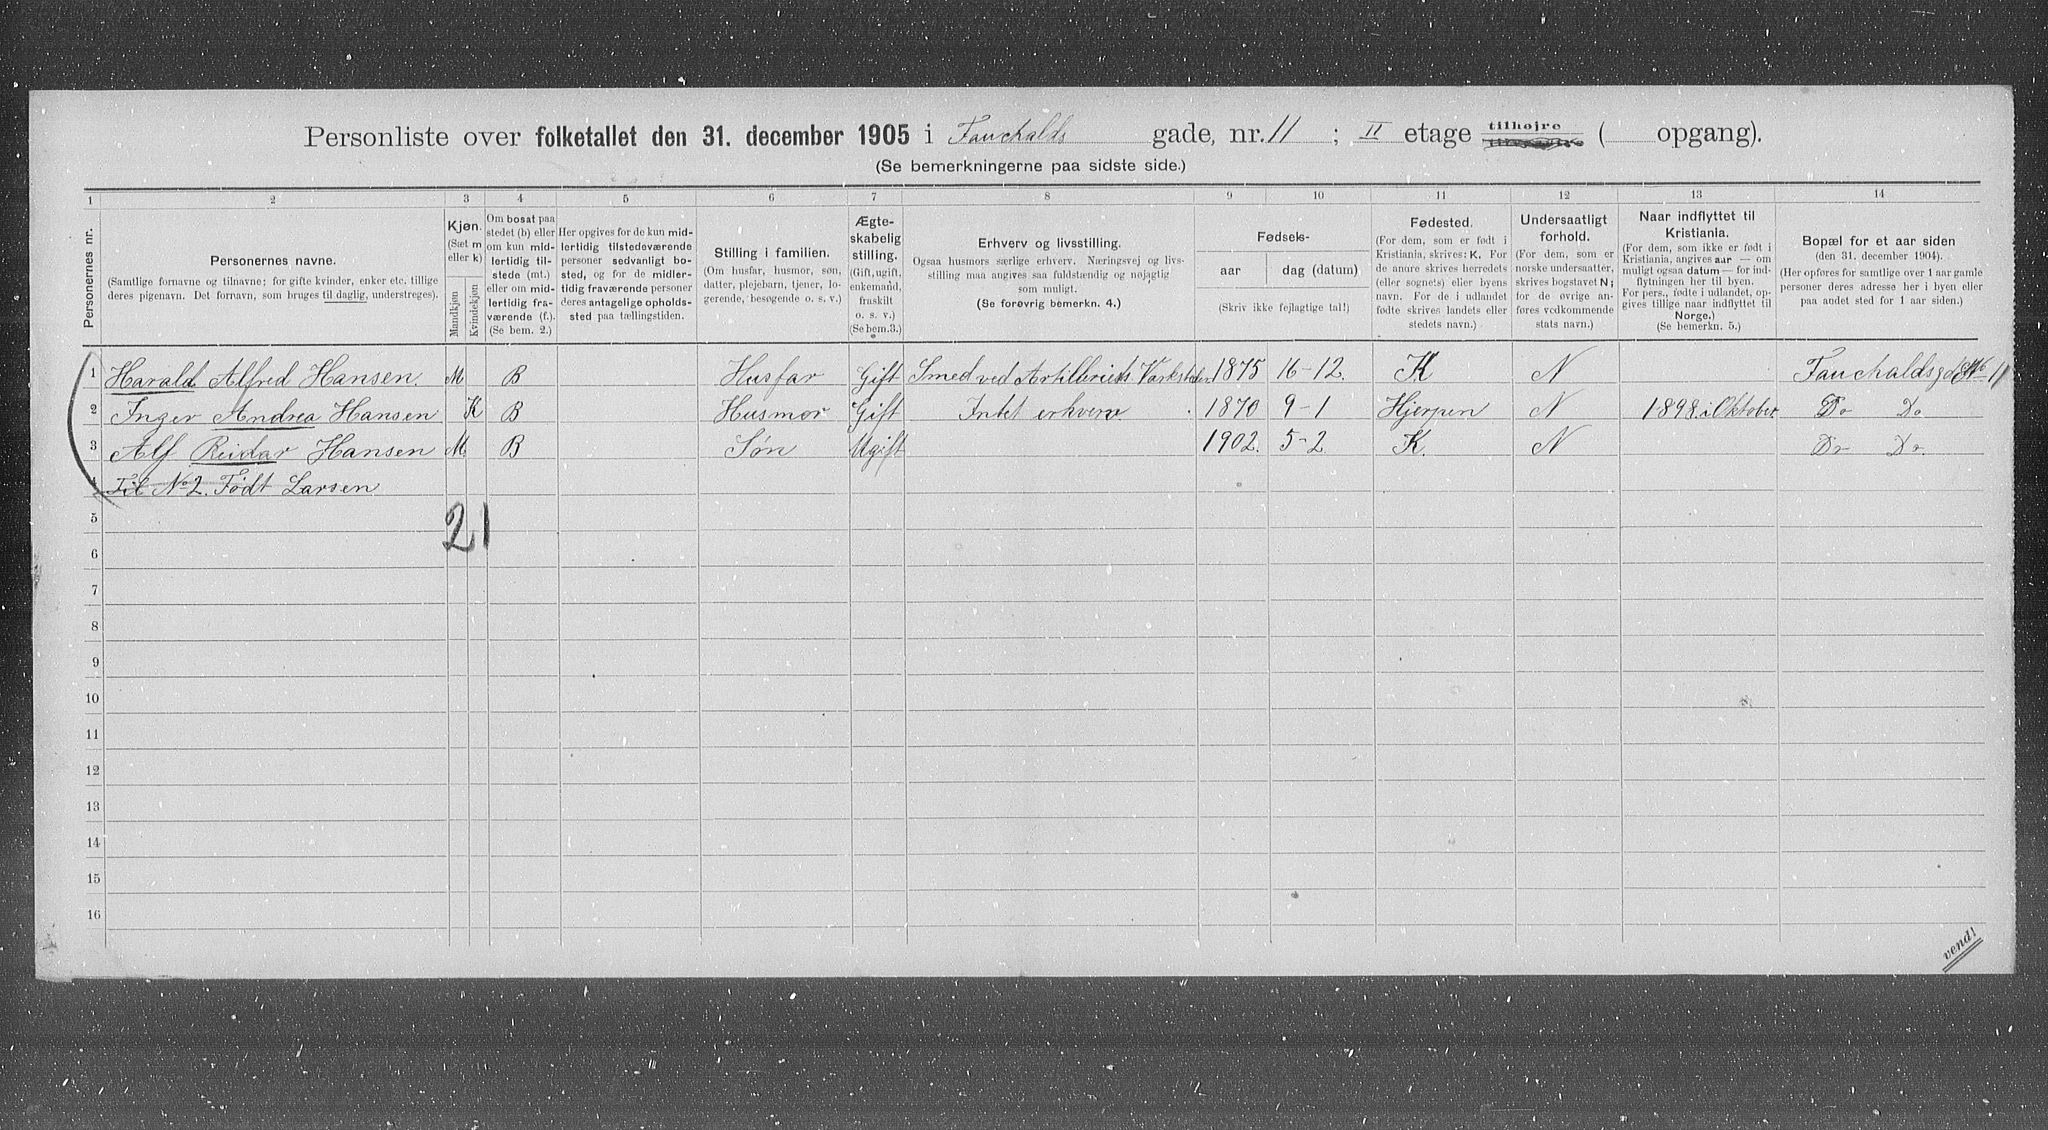 Personliste over folketallet den 31. december 1905 i Fauchalds gade, nr. 11 ; II etage tilhøjre ( opgang).
(Se bemerkningerne paa sidste side.)
1 2 3 4 5 6 7 8 9 10 11 12 13 14
Personernes nr.
Personernes navne.
(Samtlige fornavne og tilnavne; for gifte kvinder, enker etc. tillige
deres pigenavn. Det fornavn, som bruges til daglig, understreges).
Kjøn.
(Sæt m
eller k)
Mandkjøn
Kvindekjøn
Om bosat paa
stedet (b) eller
om kun mid-
lertidig til-
stede (mt.)
eller om mid-
lertidig fra-
værende (f.).
(Se bem. 2.)
Her opgives for de kun mid-
lertidig tilstedeværende
personer sedvanligt bo-
sted, og for de midler-
tidig fraværende personer
deres antagelige opholds-
sted paa tællingstiden.
Stilling i familien.
(Om husfar, husmor, søn,
datter, plejebarn, tjener, lo-
gerende, besøgende o. s. v.)
Ægte-
skabelig
stilling.
(Gift, ugift,
enkemand,
fraskilt
o. s. v.)
(Se bem.3.)
Erhverv og livsstilling.
Ogsaa husmors særlige erhverv. Næringsvej og livs-
stilling maa angives saa fuldstændig og nøjagtig
som muligt.
(Se forøvrig bemerkn. 4.)
Fødsels-
aar
dag (datum)
(Skriv ikke fejlagtige tal!)
Fødested.
(For dem, som er født i
Kristiania, skrives: K. For
de andre skrives herredets
(eller sognets) eller byens
navn. For de i udlandet
fødte skrives landets eller
stedets navn.)
Undersaatligt
forhold.
(For dem, som er
norske undersaatter,
skrives bogstavet N;
for de øvrige an-
føres vedkommende
stats navn.)
Naar indflyttet til
Kristiania.
(For dem, som ikke er født i
Kristiania, angives aar — om
muligt ogsaa datum — for ind-
flytningen her til byen.
For pers., fødte i udlandet, op-
gives tillige naar indflyttet til
Norge.)
(Se bemerkn. 5.)
Bopæl for et aar siden
(den 31. december 1904).
(Her opføres for samtlige over 1 aar gamle
personer deres adresse her i byen eller
paa andet sted for 1 aar siden.)
1 Harald Alfred Hansen. M B Husfar Gift Smed ved Artilleriets 1875 16-12. K N Fauchaldsgd No 11
2 Inger Andrea Hansen K B Husmor Gift Intet erhverv 1870 9-1 Hjerpen N 1898. i Oktober Do Do
3 Alf Reidar Hansen M. B Søn Ugift 1902. 5-2. K. N Do Do.
4 Til No 2. Født Larsen
21
5
6
7
8
9
10
11
12
13
14
15
16
vend!